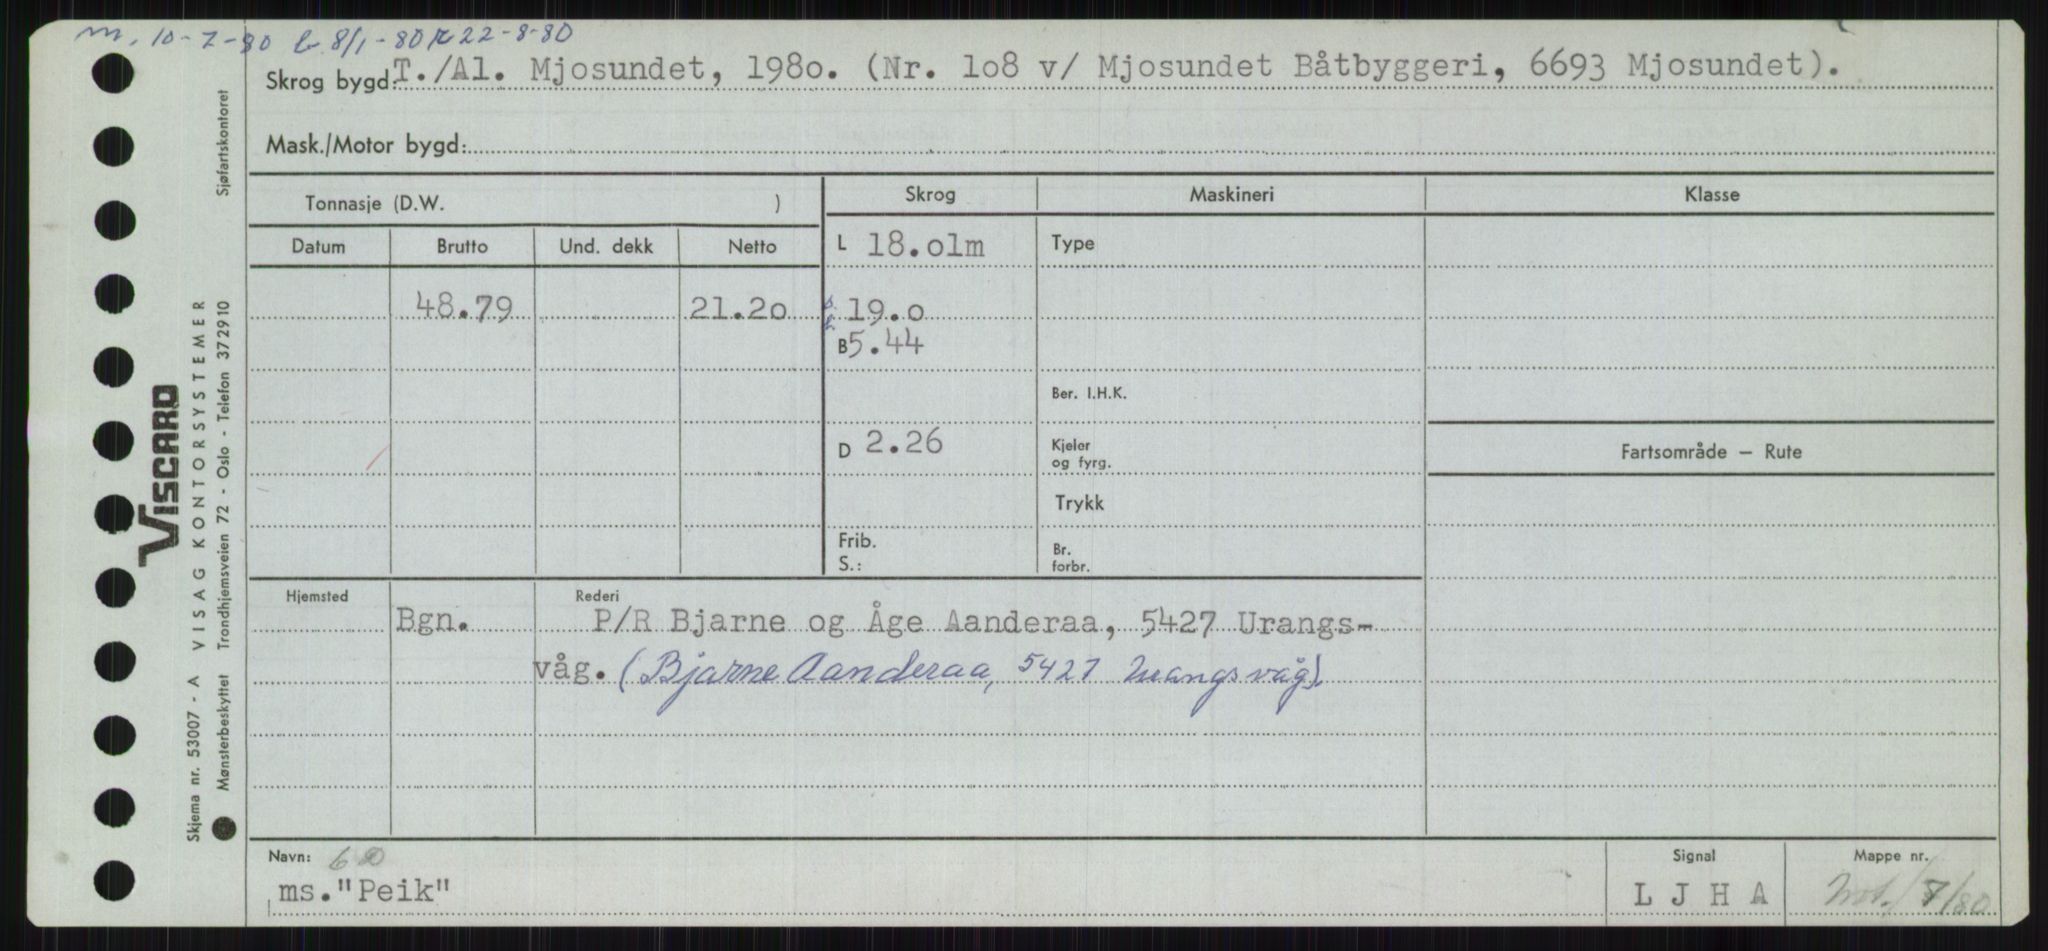 m. 10-7-80 b. 8/1-80 R 22-8-80
Skrog bygd: T./Al. Mjosundet, 198o. (Nr. lo8 v/ Mjosundet Båtbyggeri, 6693 Mjosundet).
Mask./Motor bygd:
Sjøfartskontoret
Tonnasje (D.W. )
Skrog Maskineri Klasse
Datum Brutto Und. dekk Netto
L 18.olm Type
48.79 21.2o 19.o
B 5.44
Ber. I.H.K.
D 2.26 Kjeler
og fyrg.
Fartsområde — Rute
Trykk
Frib. Br.
S.: forbr.
VISCARD
Skjema nr. 53007 - A VISAG KONTORSYSTEMER
Mønsterbeskyttet Trondhjemsveien 72 - Oslo - Telefon 372910
Hjemsted Rederi
Bgn. P/R Bjarne og Åge Aanderaa, 5427 Urangs-
våg. (Bjarne Aanderaa, 5427 Urangsvåg).
Navn: Signal Mappe nr.
ms."Peik" L J H A /80